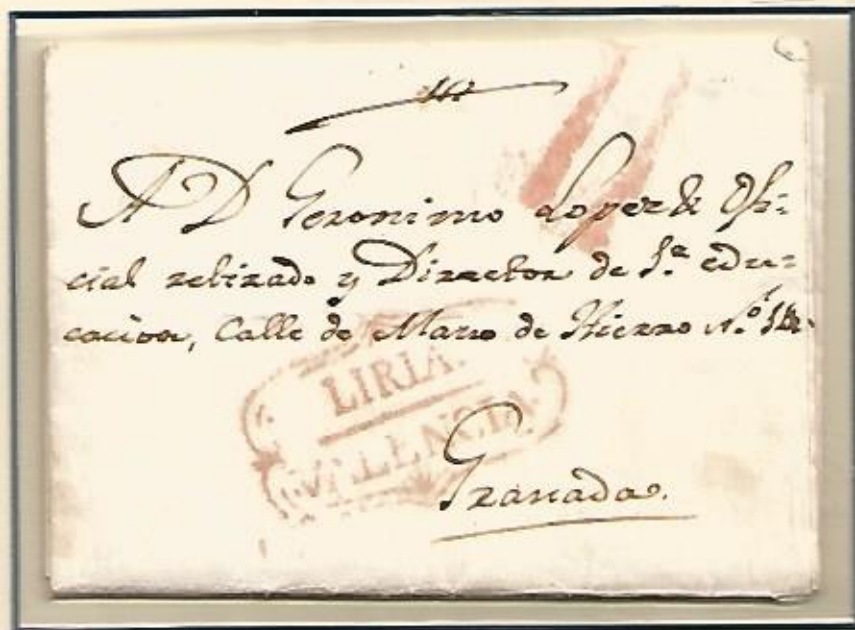 A D Geronimo Lopez & Ofi=
cial retirado y Director de 1.ª edu=
cacion, Calle de Mano de Hierro N.º
LIRIA.
VALENCIA.
Granada.